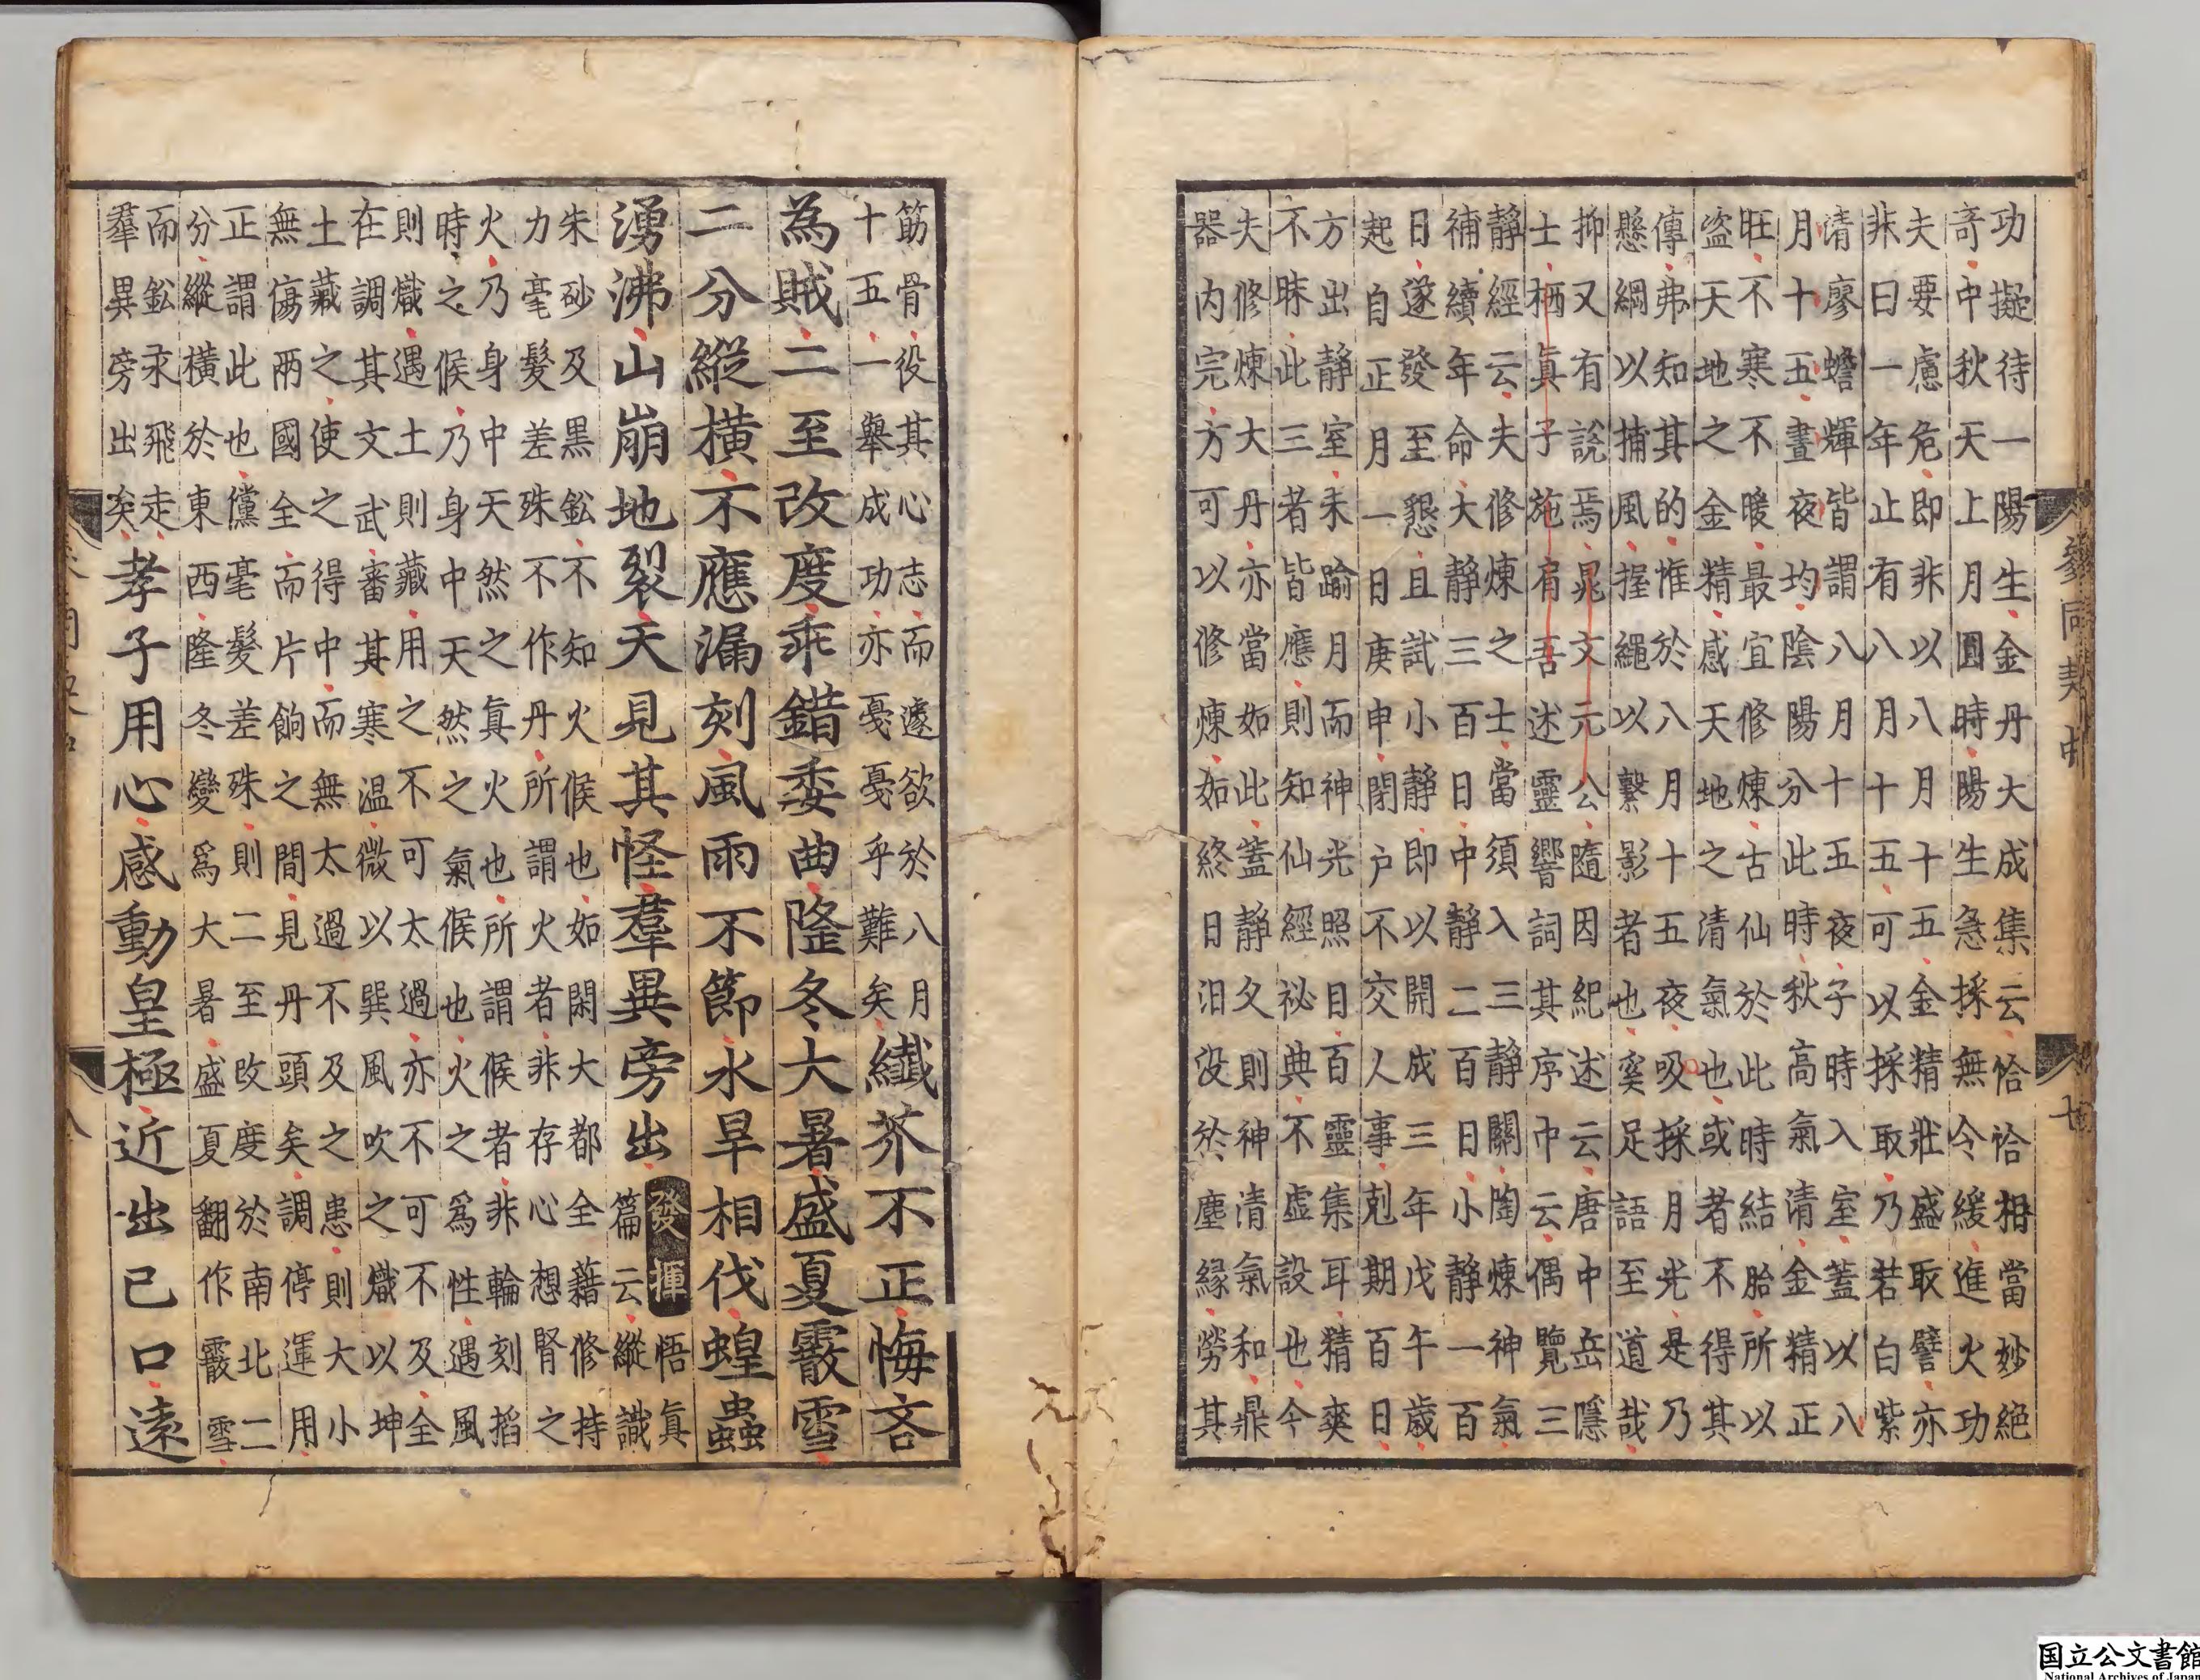 功擬待一陽生金丹大成集云恰恰相當妙絕
竒中秋天上月圓時陽生急採無令緩進火功
夫要慮危即非以八月十五金精壯盛取譬亦
非曰一年止有八月十五可以採取乃若白紫
清廖蟾輝皆謂八月十五夜子時入室蓋以八
月十五晝夜均陰陽分此時秋高氣清金精正
旺不寒不暖最宜修煉古仙於此時結胎所以
盗天地之金精感天地之清氣也或者不得其
傳弗知其的惟於八月十五夜吸採月光是乃
懸綱以捕風握繩以繫影者也奚足語至道哉
抑又有說焉晁文元公隨因紀述云唐中岳隱
士栖眞子施肩吾述靈響詞其序中云偶覽三
靜經云夫修煉之士當須入三靜關陶煉神氣
補續年命大靜三百日中靜二百日小靜一百
日遂發至懇且試小靜即以開成三年戊午歲
起自正月一日庚申閉户不交人事剋期百日
方出靜室未踰月而神光照目百靈集耳精爽
不昧此三者皆應則知仙經祕典不虚設也今
夫修煉大丹亦當如此蓋靜久則神清氣和鼎
器内完方可以修煉如終日汩没於塵緣勞其
參同契中
筋骨役其心志而遽欲於八月
十五一舉成功亦戞戞乎難矣
纖芥不正悔吝
為賊二至改度乖錯委曲隆冬大暑盛夏霰雪
二分縱橫不應漏刻風雨不節水旱相伐蝗蟲
湧沸山崩地裂天見其怪羣異旁出
發揮
悟眞
篇云縱識
朱砂及黒鉛不知火候也如閑大都全藉修持
力毫髮差殊不作丹所謂火者非存心想腎之
火乃身中天然之眞火也所謂候者非輪刻搯
時之候乃身中天然之氣候也火之為性遇風
則熾遇土則藏用之不可太過亦不可不及全
在調其文武審其寒温微以巽風吹之熾以坤
土藏之使之得中而無太過不及之患則大小
無傷兩國全而片餉之間見丹頭矣調停運用
正謂此也儻毫髮差殊則二至改度於南北二
分縱橫於東西隆冬變爲大暑盛夏翻作霰雪
而鉛汞飛走
羣異旁出矣
孝子用心感動皇極近出己口遠
国立公文書館
National Archives of Japan